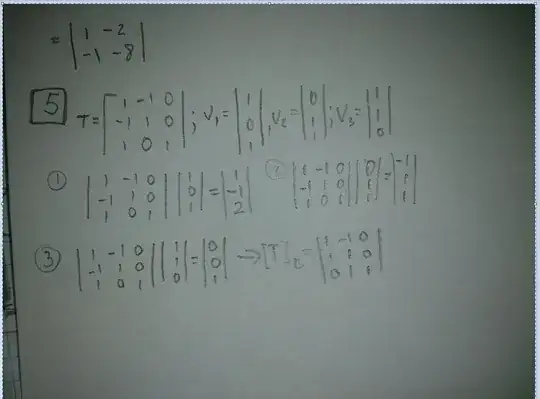 = | 1 -2 |
| -1 -8 |
5 T = [1 -1 0; -1 1 0; 1 0 1]; V₁ = |1; 0; 1|, V₂ = |0; 1; 1|; V₃ = |1; 1; 0|
① |1 -1 0; -1 1 0; 1 0 1| |1; 0; 1| = |1; -1; 2| ② |1 -1 0; -1 1 0; 1 0 1| |0; 1; 1| = |-1; 1; 1|
③ |1 -1 0; -1 1 0; 1 0 1| |1; 1; 0| = |0; 0; 1| → [T] =